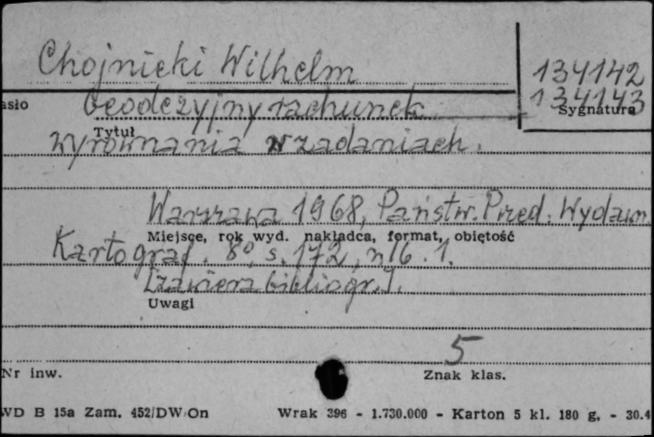 Chojnicki Wilhelm
134142
134143
asło
Sygnatura
Geodezyjny rachunek
Tytuł
wyrównania w zadaniach.
Warszawa 1968, Państw. Przed. Wydawn.
Miejsce, rok wyd. nakładca, format, objętość
Kartograf. 8°, s. 172, nlb. 1.
[Zawiera bibliogr.].
Uwagi
5
Nr inw.
Znak klas.
WD B 15a Zam. 452/DW/On
Wrak 396 - 1.730.000 - Karton 5 kl. 180 g. - 30.4